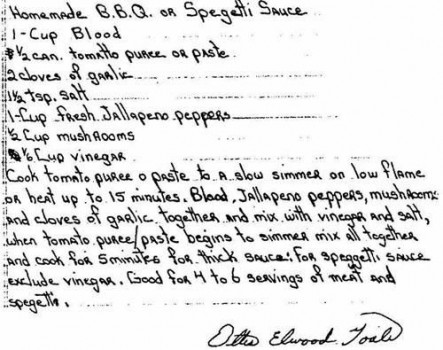 Homemade B.B.Q. or Spegetti Sauce
1-Cup Blood
1/2 can. tomatto puree or paste.
2 cloves of garlic
1 1/2 tsp. salt
1-Cup fresh Jallapeno peppers
1/2 Cup mushrooms
Cup vinegar
Cook tomato puree o paste to a slow simmer on low flame
or heat up to 15 minutes. Blood, Jallapeno peppers, mushrooms
and cloves of garlic together and mix with vinegar and salt,
when tomato puree/paste begins to simmer mix all together
and cook for 5 minutes for thick sauce: for speggetti sauce
exclude vinegar. Good for 4 to 6 servings of meat and
spegetti.
Ottis Elwood Toole